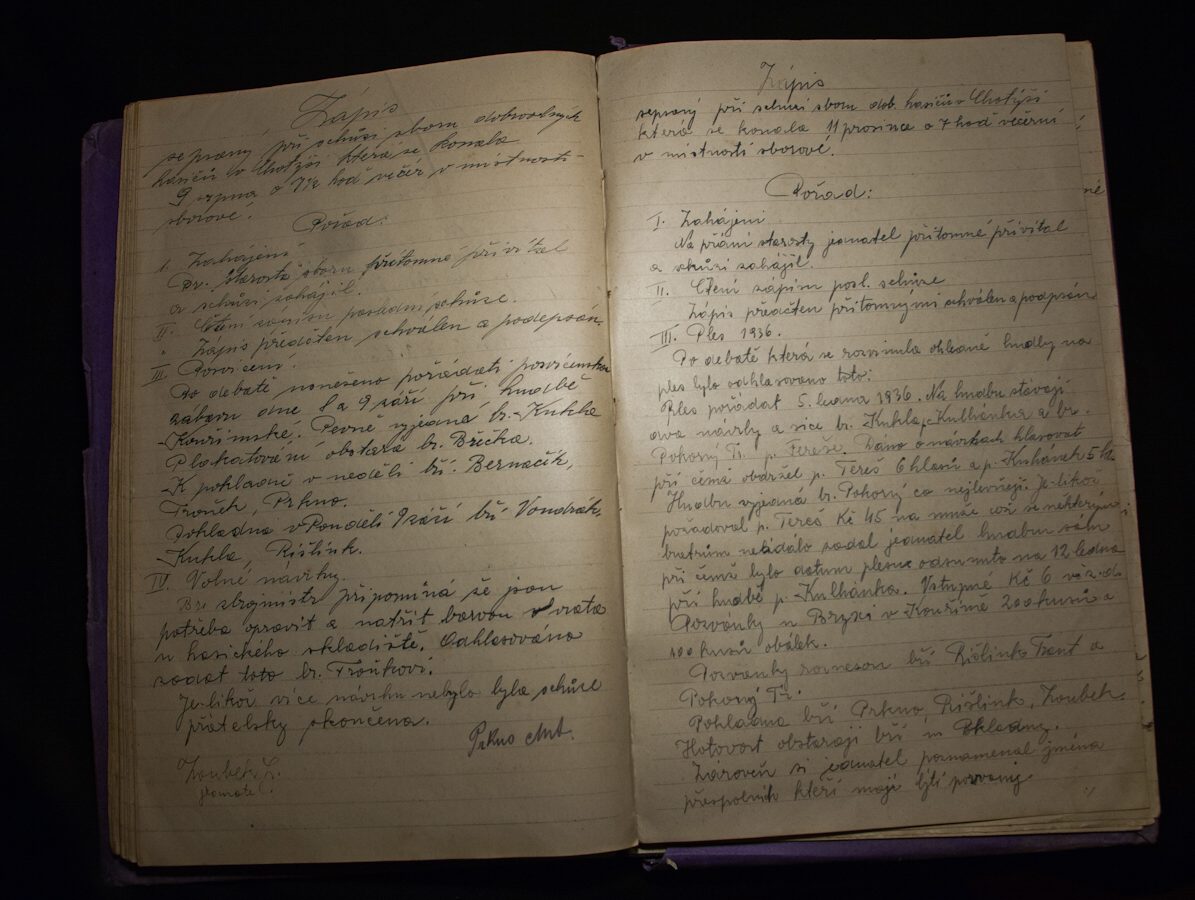 Zápis
sepsaný při schůzi sboru dobrovolných
hasičů v Chotýši která se konala
9 srpna o 7½ hod večer v místnosti
sborové.
Pořad:
I. Zahájení
Br. starosta sboru přítomné přivítal
a schůzi zahájil.
II. Čtení zápisu poslední schůze.
Zápis předčten schválen a podepsán.
III. Posvícení.
Po debatě usneseno pořádati posvícenskou
zábavu dne 8 a 9 září při hudbě
Kouřimské. Pevně vyjedná br. Kukla
Plakátování obstará br. Břečka.
K pokladně v neděli bří. Bernačík,
Trouek, Prkno.
Pokladna v Pondělí 9 září bří Vondrák,
Kukla, Rišlink.
IV. Volné návrhy.
Br. zbrojmistr připomíná že jsou
potřeba opravit a natřít barvou vrata
u hasického skladiště. Odhlasováno
zadat toto br. Troukovi.
Jelikož více návrhů nebylo byla schůze
přátelsky skončena.
Prkno Ant.
Zoubek
jednatel
Zápis
sepsaný při schůzi sboru dob. hasičů v Chotýši
která se konala 11 prosince o 7 hod večerní
v místnosti sborové.
Pořad:
I. Zahájení
Na přání starosty jednatel přítomné přivítal
a schůzi zahájil.
II. Čtení zápisu posl. schůze
Zápis předčten přítomnými schválen a podepsán
III. Ples 1936.
Po debatě která se rozvinula ohledně hudby na
ples bylo odhlasováno toto:
Ples pořádat 5. ledna 1936. Na hudbu stávají
dva návrhy a sice br. Kukla p. Kulhánka a br.
Pokorný Fr. p. Tereše. Dáno o návrhách hlasovat
při čemž obdržel p. Tereš 6 hlasů a p. Kulhánek 5 hl.
Hudbu vyjedná br. Pokorný co nejlevněji. Jelikož
požadoval p. Tereš Kč 45 na muže což se některým
bratrům nelíbilo zadal jednatel hudbu sám
při čemž bylo datum plesu odsunuto na 12 ledna
při hudbě p. Kulhánka. Vstupné Kč 6 
Pozvánky u Bryxi v Kouřimě 200 kusů a
100 kusů obálek.
Pozvánky roznesou bří Rišlink Frant a
Pokorný Fr.
Pokladna bří Prkno, Rišlink, Zoubek.
Hotovost obstarají bří 
Zároveň si jednatel poznamenal jména
přespolních kteří mají býti pozváni.